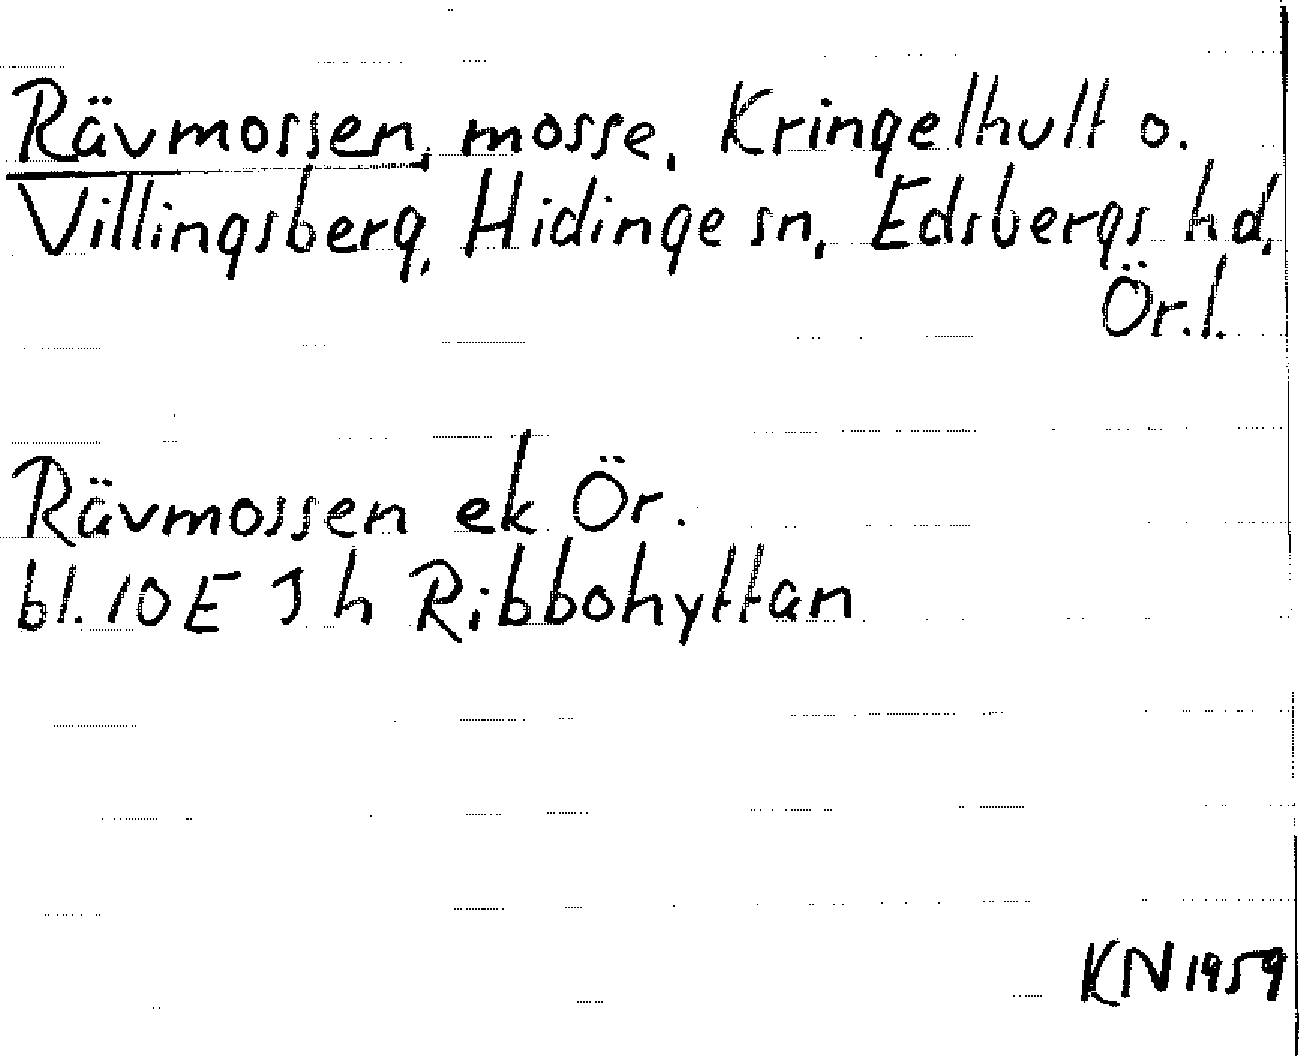 Rävmossen, mosse, Kringelhult o.
Villingsberg, Hidinge sn, Edsbergs hd,
Ör. l.
Rävmossen ek Ör.
bl. 10 E 3 h Ribbohyttan
KN 1959